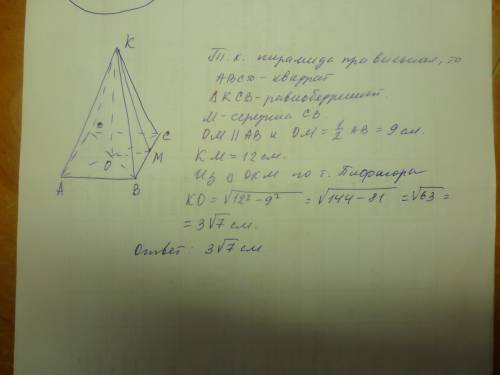 K
C
M
O
A
B
Т.к. пирамида правильная, то
ABCD - квадрат
ΔKCB - равнобедренный.
M - середина CB
OM || AB и OM = 1/2 AB = 9 см.
KM = 12 см.
Из Δ OKM по т. Пифагора
KO = √(12² - 9²) = √(144 - 81) = √63 =
= 3√7 см.
Ответ: 3√7 см